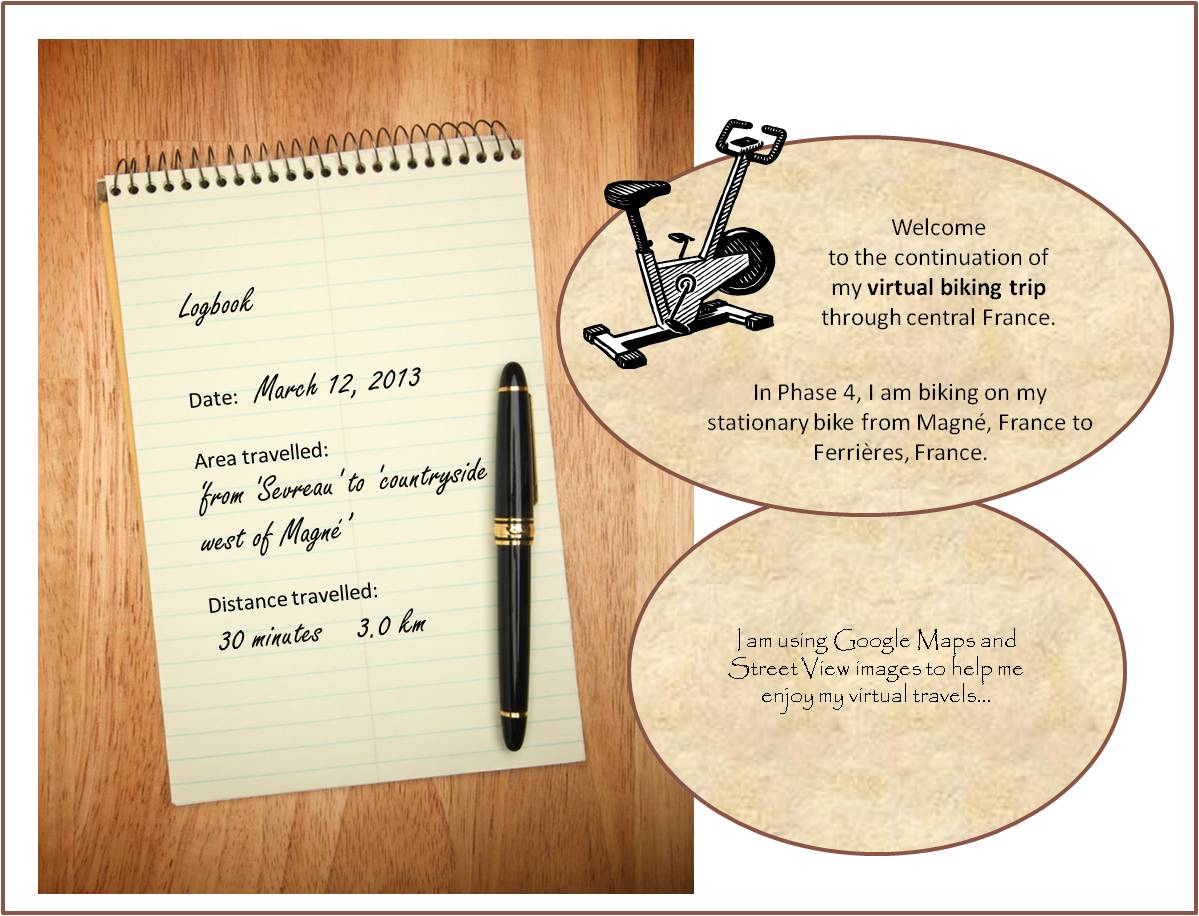 Logbook
Date: March 12, 2013
Area travelled:
'from 'Sevreau' to 'countryside
west of Magné'
Distance travelled:
30 minutes 3.0 km
Welcome
to the continuation of
my virtual biking trip
through central France.
In Phase 4, I am biking on my
stationary bike from Magné, France to
Ferrières, France.
I am using Google Maps and
Street View images to help me
enjoy my virtual travels...